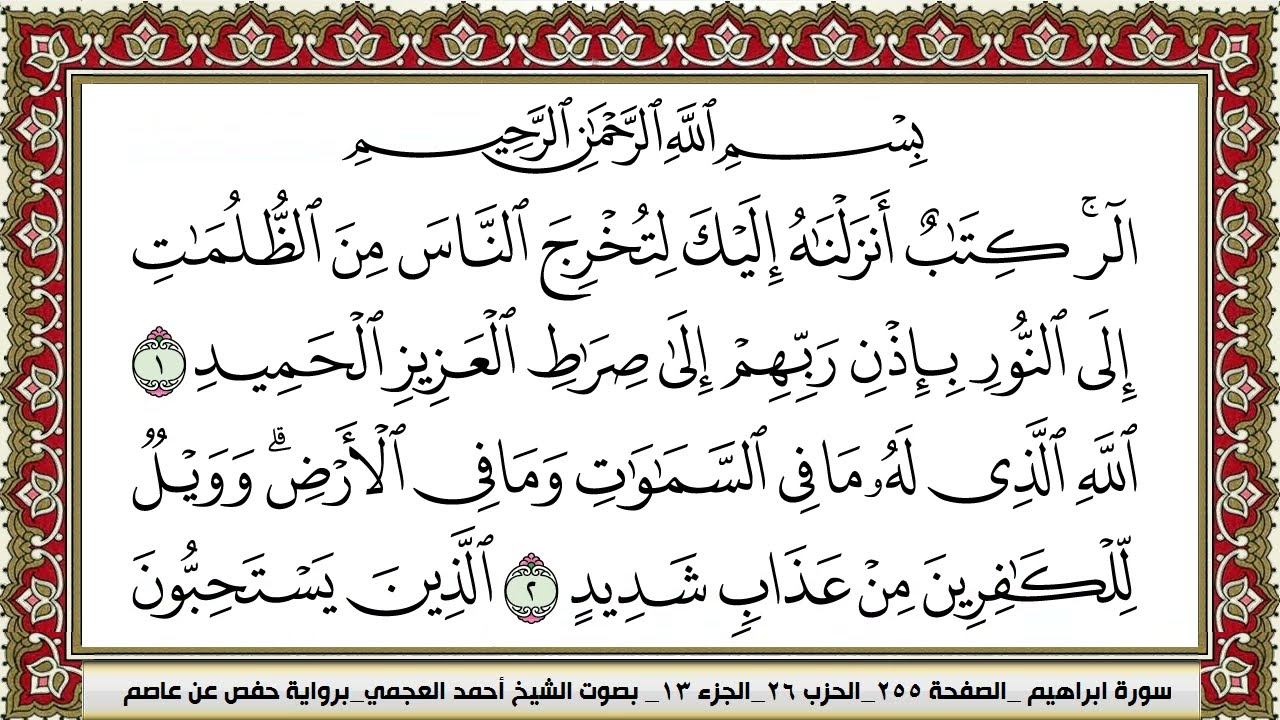 بِسْمِ ٱللَّهِ ٱلرَّحْمَٰنِ ٱلرَّحِيمِ
الٓرۚ كِتَٰبٌ أَنزَلْنَٰهُ إِلَيْكَ لِتُخْرِجَ ٱلنَّاسَ مِنَ ٱلظُّلُمَٰتِ
إِلَى ٱلنُّورِ بِإِذْنِ رَبِّهِمْ إِلَىٰ صِرَٰطِ ٱلْعَزِيزِ ٱلْحَمِيدِ ١
ٱللَّهِ ٱلَّذِى لَهُۥ مَا فِى ٱلسَّمَٰوَٰتِ وَمَا فِى ٱلْأَرْضِۗ وَوَيْلٌ
لِّلْكَٰفِرِينَ مِنْ عَذَابٍ شَدِيدٍ ٢ ٱلَّذِينَ يَسْتَحِبُّونَ
سورة ابراهيم _الصفحة ٢٥٥_الحزب ٢٦_الجزء ١٣_ بصوت الشيخ أحمد العجمي_برواية حفص عن عاصم